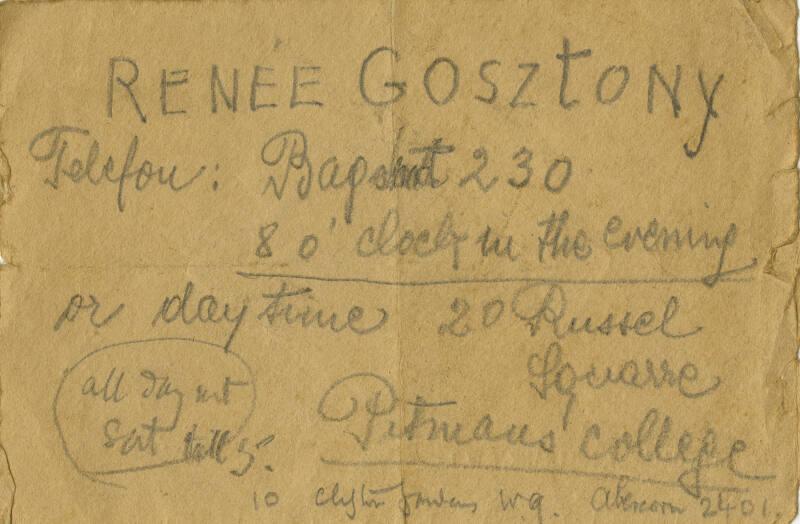 RENÉE GOSZTONY
Telefon: Bagshot 230
8 o' clock in the evening
or daytime 20 Russel
Squarre
all day not
Sat till 5.
Pitmans' college
10 Clifton Gardens W.9. Abercorn 2401.